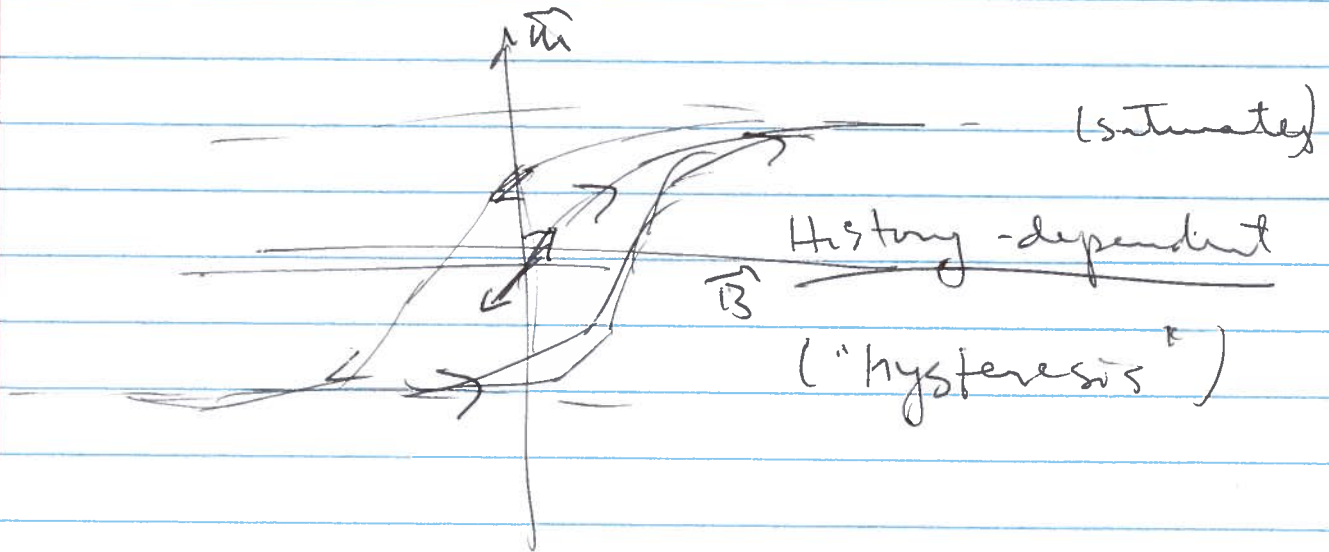 m⃗
(saturates)
History-dependent
B⃗
("hysteresis")